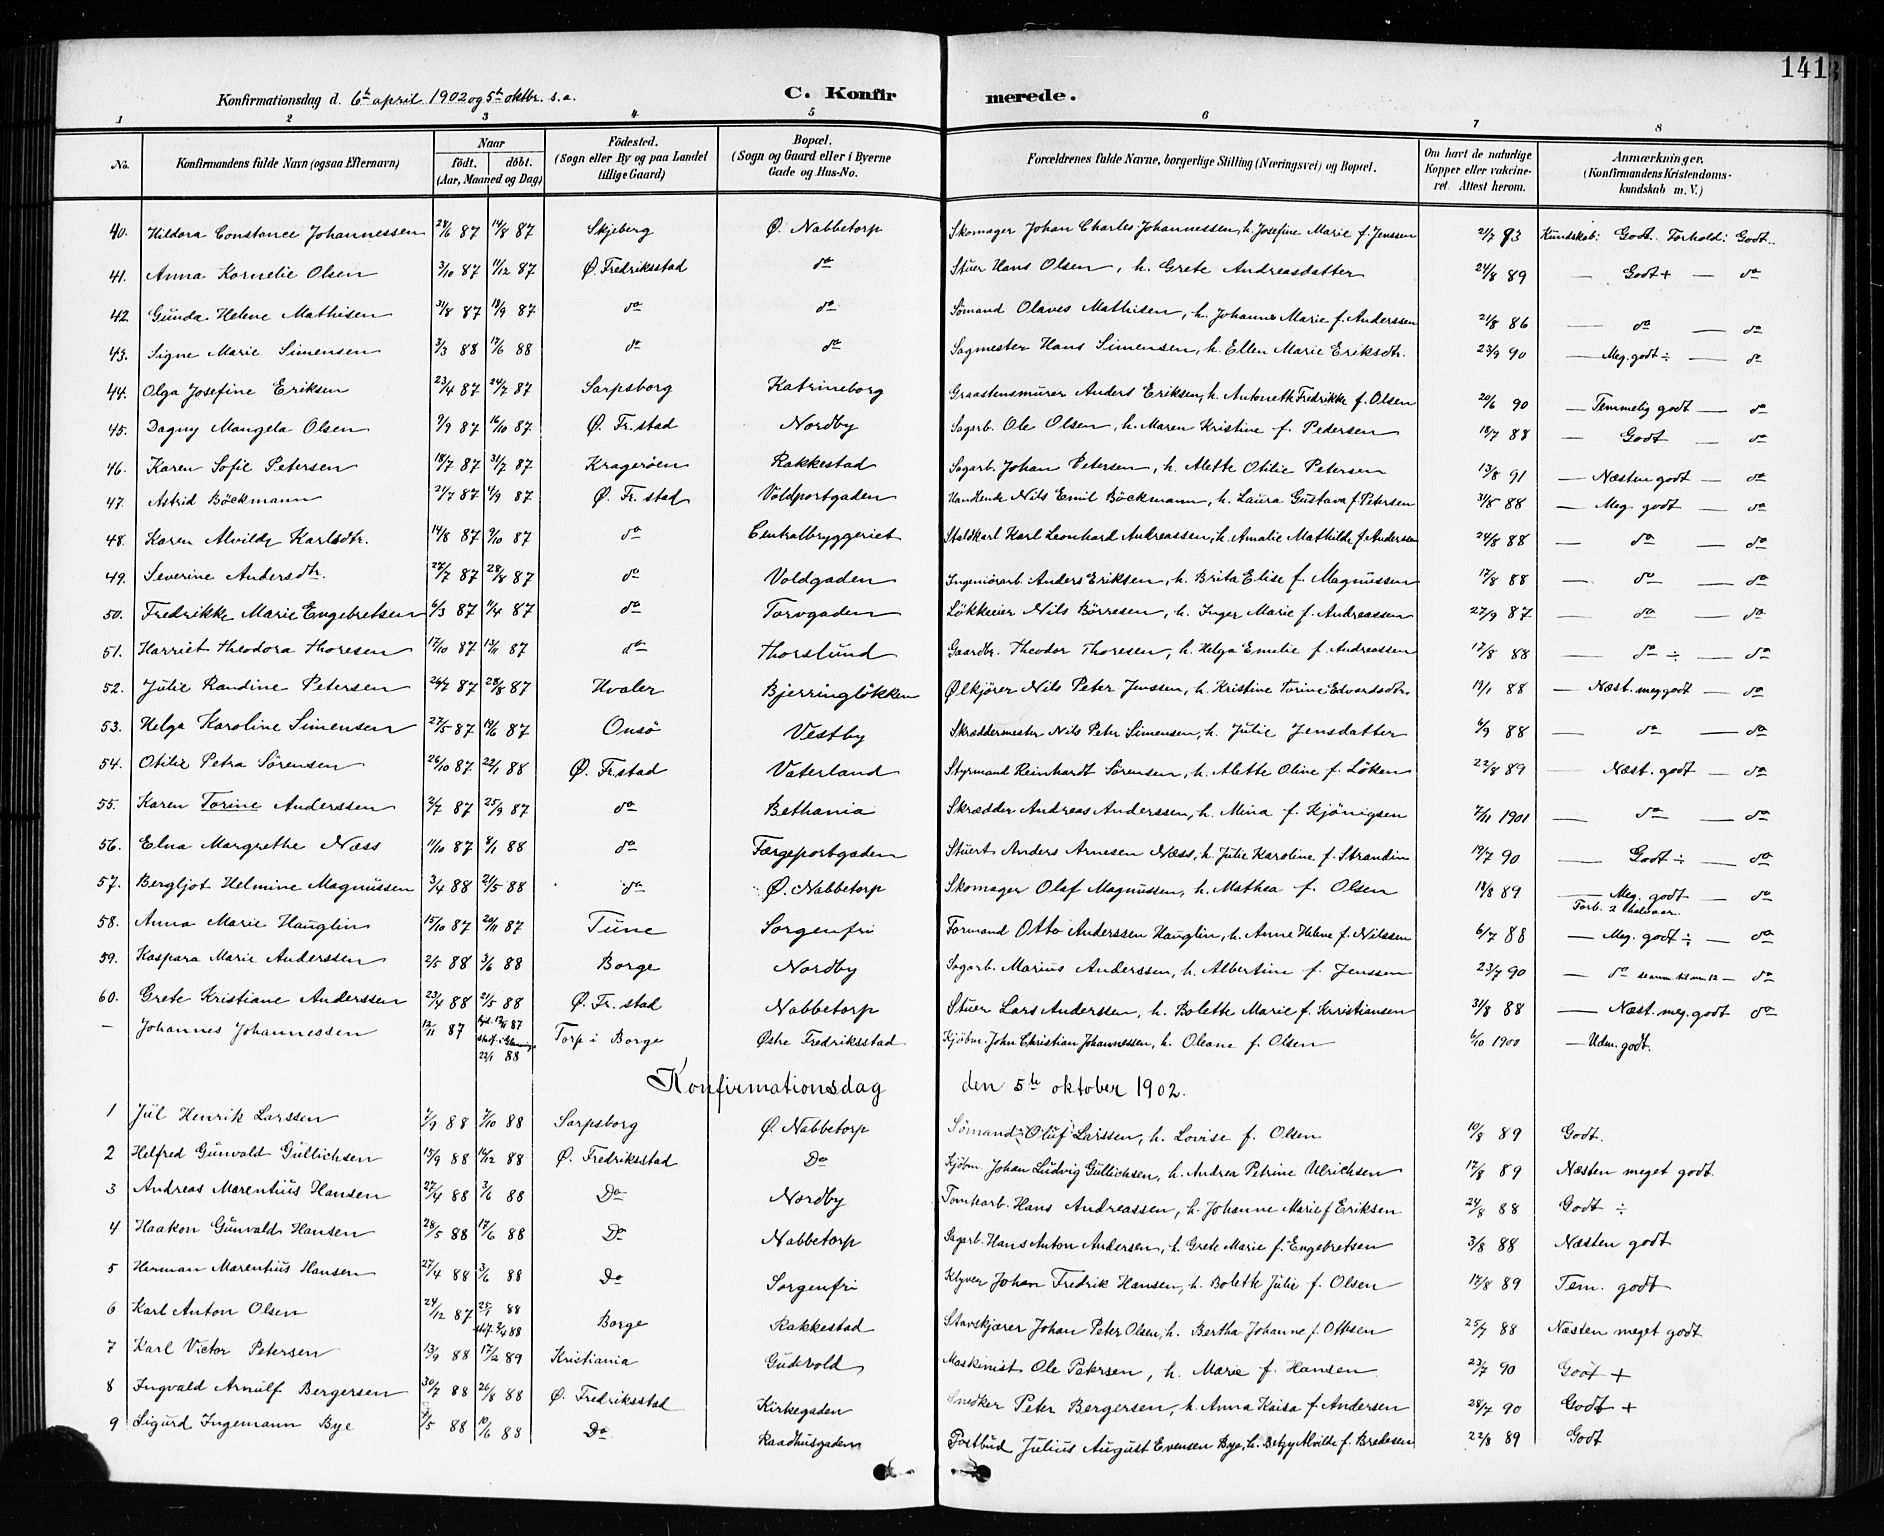 141
Konfirmationsdag d. 6te april 1902 og 5te oktbr. s.a. C. Konfirmerede.
1 2 3 4 5 6 7 8
No. Konfirmandens fulde Navn (ogsaa Efternavn) Naar født. døbt. (Aar, Maaned og Dag) Fødested. (Sogn eller By og paa Landet tillige Gaard) Bopæl. (Sogn og Gaard eller i Byerne Gade og Hus-No. Forældrenes fulde Navne, borgerlige Stilling (Næringsvei) og Bopæl. Om havt de naturlige Kopper eller vakcineret. Attest herom. Anmærkninger. (Konfirmandens Kristendomskundskab m. V.)
40. Hildora Constance Johannessen 24/6 87 14/8 87 Skjeberg Ø. Nabbetorp Skomager Johan Charles Johannessen, h. Josefine Marie f. Jenssen 2/7 93 Kundskab: Godt. Forhold: Godt.
41. Anna Kornelie Olsen 3/10 87 11/12 87 Ø. Fredriksstad do Stuer Hans Olsen, h. Grete Andreasdatter 24/8 89 — Godt + — do
42. Gunda Helene Mathisen 31/8 87 18/9 87 do do Sømand Olaves Mathisen, h. Johanne Marie f. Anderssen 21/8 86 — do — do
43. Signe Marie Simensen 3/3 88 17/6 88 do do Sagmester Hans Simensen, h. Ellen Marie Eriksdtr. 23/9 90 — Meg. godt ÷ — do
44. Olga Josefine Eriksen 23/4 87 24/7 87 Sarpsborg Katrineborg Graastensmurer Anders Eriksen, h. Antonette Fredrikke f. Olsen 20/6 90 — Temmelig godt — do
45. Dagny Mangela Olsen 9/9 87 16/10 87 Ø. Fr.stad Nordby Sagarb. Ole Olsen, h. Maren Kristine f. Pedersen 18/7 88 — Godt — do
46. Karen Sofie Petersen 18/7 87 31/7 87 Kragerøen Rakkestad Sagarb. Johan Petersen, h. Alette Otilie Petersen 13/8 91 — Næsten godt — do
47. Astrid Böckmann 21/7 87 4/9 87 Ø. Fr.stad Voldportgaden Handlende Nils Emil Böckmann, h. Laura Gustava f. Petersen 31/8 88 — Meg. godt — do
48. Karen Alvilde Karlsdtr. 14/8 87 9/10 87 do Centralbryggeriet Staldkarl Karl Leonhard Andreassen, h. Amalie Mathilde f. Anderssen 24/8 88 — do — do
49. Severine Andersdtr. 22/7 87 28/8 87 do Voldgaden Ingeniörarb Anders Eriksen, h. Brita Elise f. Magnussen 17/8 88 — do — do
50. Fredrikke Marie Engebretsen 6/3 87 11/4 87 do Torvgaden Løkkeeier Nils Börresen, h. Inger Marie f. Andreassen 27/9 87 — do — do
51. Harriet Theodora Thoresen 17/10 87 13/11 87 do Thorslund Gaardbr. Theodor Thoresen, h. Helga Emelie f. Andreassen 17/8 88 — do ÷ — do
52. Julie Randine Petersen 26/7 87 28/8 87 Hvaler Bjerringløkken Ølkjører Nils Peter Jenssen, h. Kristine Torine Edvardsdtr. 19/1 88 — Næst. meg godt — do
53. Helga Karoline Simensen 27/5 87 19/6 87 Onsø Vestby Skræddermester Nils Peter Simensen, h. Julie Jensdatter 6/9 88 — do — do
54. Otilie Petra Sörensen 26/10 87 22/1 88 Ø. Fr.stad Vaterland Styrmand Reinhardt Sörensen, h. Alette Oline f. Löken 22/8 89 — Næst. godt — do
55. Karen Torine Anderssen 2/7 87 25/9 87 do Bethania Skrædder Andreas Anderssen, h. Mina f. Kjönigsen 7/11 1901 — do — do
56. Elna Margrethe Næss 11/10 87 8/1 88 do Færgeportgaden Stuert Anders Arnesen Næss, h. Julie Karoline f. Strandin 19/7 90 — Godt ÷ — do
57. Bergljot Helmine Magnussen 3/4 88 21/5 88 do Ø. Nabbetorp Skomager Olof Magnussen, h. Mathea f. Olsen 18/8 89 — Meg. godt — do
Forb. 2 halvaar.
58. Anna Marie Hauglin 15/10 87 20/11 87 Tune Sorgenfri Formand Otto Anderssen Hauglin, h. Anne Helene f. Nilssen 6/7 88 — Meg. godt ÷ — do
59. Kaspara Marie Anderssen 2/5 88 3/6 88 Borge Nordby Sagarb. Marius Anderssen, h. Albertine f. Jenssen 23/7 90 — do — do
60. Grete Kristiane Anderssen 23/4 88 21/5 88 Ø. Fr.stad Nabbetorp Stuer Lars Anderssen, h. Bolette Marie f. Kristiansen 31/8 88 — Næst. meg. godt do
— Johannes Johannessen 12/11 87 hjd. 12/11 87 stadf. i Glemminge 22/1 88 Torp i Borge Østre Fredriksstad Kjøbm. John Christian Johannessen, h. Oleane f. Olsen 6/10 1900 — Udm. godt.
Konfirmationsdag den 5te oktober 1902.
1 Jul Henrik Larssen 7/9 88 7/10 88 Sarpsborg Ø. Nabbetorp Sömand Oluf Larssen, h. Lovise f. Olsen 10/8 89 Godt.
2 Helfred Gunvald Gullichsen 15/9 88 16/12 88 Ø. Fredriksstad Do Kjøbm. Johan Ludvig Gullichsen, h. Andrea Petrine Ulrichsen 17/8 89 Næsten meget godt.
3 Andreas Marentius Hansen 27/4 88 3/6 88 Do Nordby Tomtearb. Hans Andreassen, h. Johanne Marie f Eriksen 24/8 88 Godt ÷
4 Haakon Gunvald Hansen 28/5 88 17/6 88 Do Nabbetorp Sagarb. Hans Anton Andersen, h. Grete Marie f. Engebretsen 3/8 88 Næsten godt
5 Herman Marentius Hansen 27/4 88 3/6 88 Do Sorgenfri Klyver Johan Fredrik Hansen, h. Boleth Julie f. Olsen 17/8 89 Tem. godt
6 Karl Anton Olsen 24/12 87 25/1 88 stdf. 2/4 88 Borge Rakkestad Stavskjærer Johan Peter Olsen, h. Bertha Johanne f. Ottesen 25/7 88 Næsten meget godt
7 Karl Victor Petersen 13/9 88 17/2 89 Kristiania Gudevold Maskinist Ole Petersen, h. Marie f. Hansen 23/7 90 Godt +
8 Ingvald Arnulf Bergersen 30/7 88 26/8 88 Ø. Fredriksstad Kirkegaden Snedker Peter Bergersen, h. Anna Kaisa f. Andersen 28/7 90 Godt +
9 Sigurd Ingemann Bye 7/5 88 10/6 88 Do Raadhusgaden Postbud Julius August Evensen Bye, h. Betzy Alvilde f. Bredesen 22/8 89 Godt